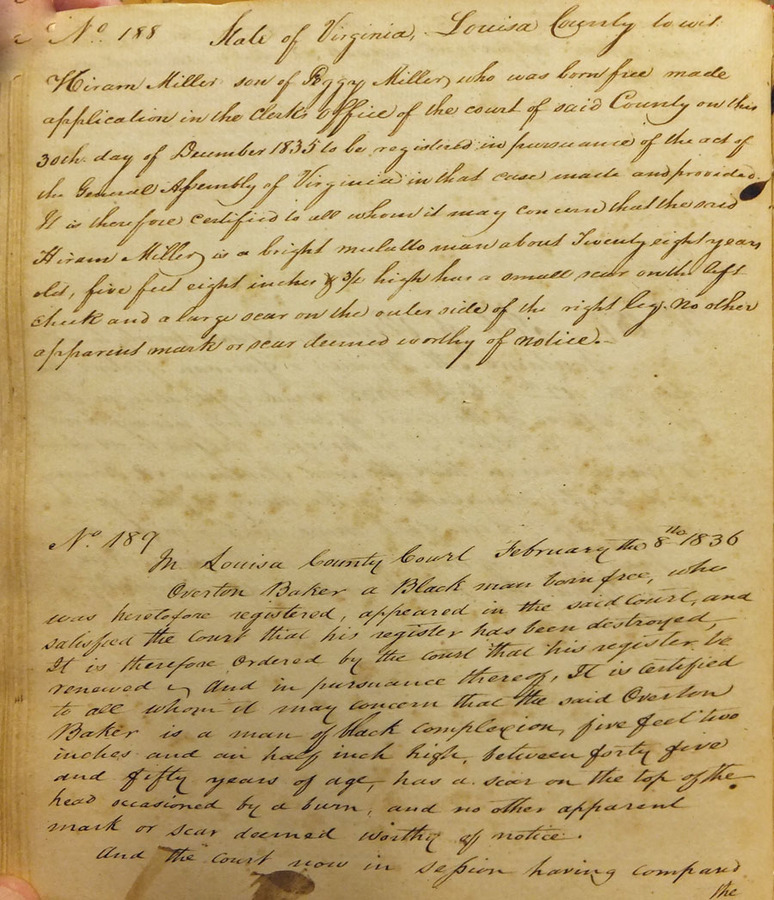 No. 188 State of Virginia, Louisa County to wit
Hiram Miller son of Peggy Miller, who was born free made
application in the Clerks Office of the court of said County on this
30th day of December 1835 to be registered in pursuance of the act of
the General Assembly of Virginia in that case made and provided.
It is therefore certified to all whom it may concern that the said
Hiram Miller is a bright mulatto man about Twenty eight years
old, five feet eight inches & 3/4 high has a small scar on the left
cheek and a large scar on the outer side of the right leg. No other
apparent mark or scar deemed worthy of notice.
No. 189
In Louisa County Court February the 8th 1836
Overton Baker a Black man born free, who
was heretofore registered, appeared in the said Court, and
satisfied the Court that his register has been destroyed,
It is therefore Ordered by the Court that his register be
renewed And in pursuance thereof, It is Certified
to all whom it may concern that the said Overton
Baker is a man of black complexion, five feet two
inches and an half inch high, between forty five
and fifty years of age, has a scar on the top of the
head occasioned by a burn, and no other apparent
mark or scar deemed worthy of notice.
And the court now in session having compared
the